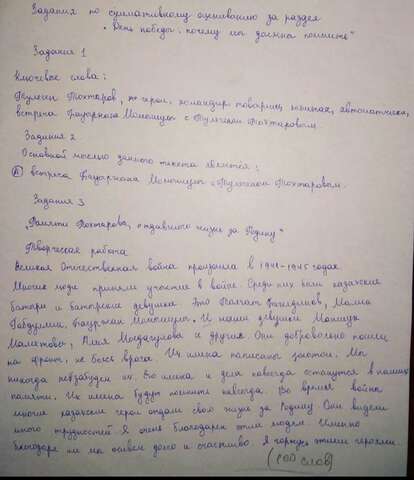 Задания по суммативному оцениванию за раздел
"День победы: почему мы должны помнить"
Задания 1
Ключевое слова:
Тулеген Тохтаров, герои, командир, товарищ, автоматчики,
встреча Бауыржана Момышулы с Тулегеном Тохтаровом.
Задания 2
Основной мыслью данного текста является:
А) встреча Бауыржана Момышулы с Тулегеном Тохтаровом.
Задания 3
"Памяти Тохтарова, отдавшего жизнь за Родину"
Творческая работа
Великая Отечественная война произошла в 1941-1945 годах
Многие люди приняли участие в войне. Среди них были казахские
батыры и батырские девушки. Это Талгат Бигелдинов, Малик
Габдуллин, Бауржан Момышулы. И наши девушки Маншук
Маметовы, Алия Молдагулова и другие. Они добровольно пошли
на фронт, не боясь врага. Их имена написаны золотом. Мы
никогда незабудем их. Во имена и дела навсегда останутся в наших
памяти. Их имена будут помнить навсегда. Во время войны
многие казахские герои отдали свою жизнь за Родину. Они видели
много трудностей. Я очень благодарен этим людям. Именно
благодаря им мы живём долго и счастливо. Я горжусь этими героями.
(100 слов)